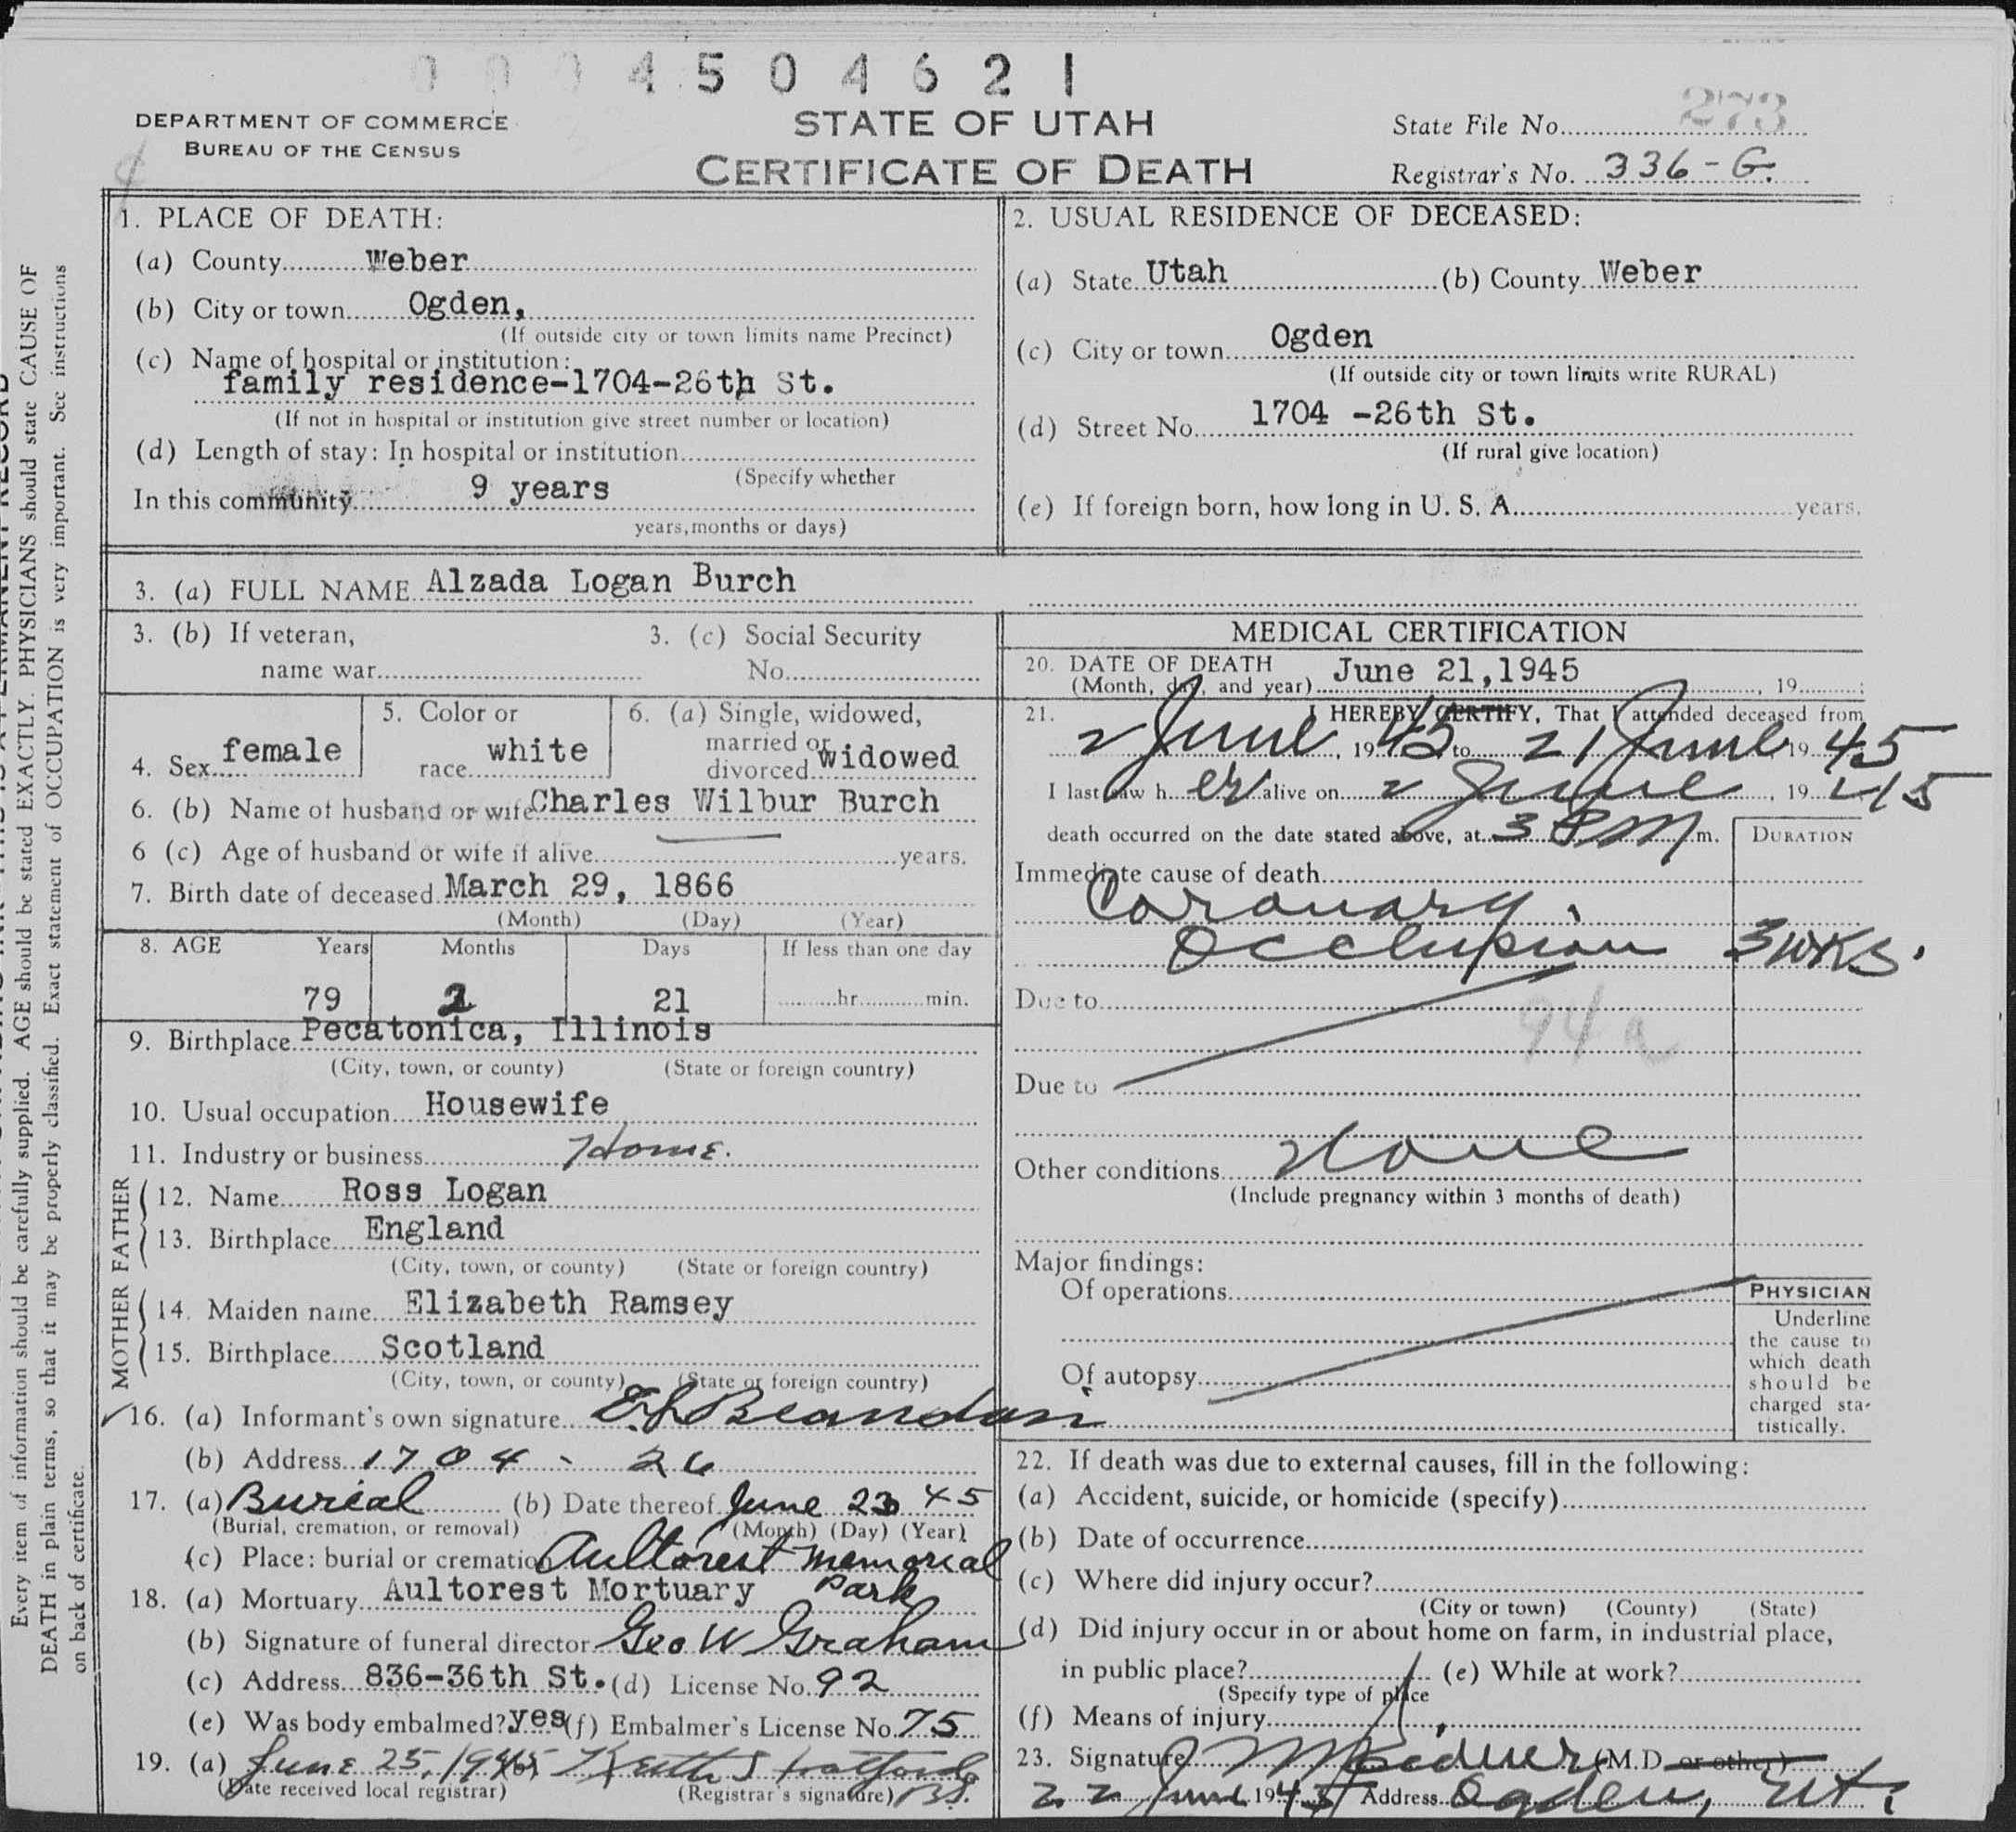 4504621
DEPARTMENT OF COMMERCE
BUREAU OF THE CENSUS
STATE OF UTAH
CERTIFICATE OF DEATH
State File No. 273
Registrar's No. 336-G.
1. PLACE OF DEATH:
(a) County Weber
(b) City or town Ogden,
(If outside city or town limits name Precinct)
(c) Name of hospital or institution:
family residence-1704-26th St.
(If not in hospital or institution give street number or location)
(d) Length of stay: In hospital or institution
(Specify whether
In this community 9 years
years, months or days)
2. USUAL RESIDENCE OF DECEASED:
(a) State Utah (b) County Weber
(c) City or town Ogden
(If outside city or town limits write RURAL)
(d) Street No. 1704 -26th St.
(If rural give location)
(e) If foreign born, how long in U. S. A. years.
3. (a) FULL NAME Alzada Logan Burch
3. (b) If veteran,
name war
3. (c) Social Security
No.
4. Sex female
5. Color or
race white
6. (a) Single, widowed,
married or
divorced widowed
6. (b) Name of husband or wife Charles Wilbur Burch
6 (c) Age of husband or wife if alive years.
7. Birth date of deceased March 29, 1866
(Month) (Day) (Year)
8. AGE Years Months Days If less than one day
79 2 21 hr. min.
9. Birthplace Pecatonica, Illinois
(City, town, or county) (State or foreign country)
10. Usual occupation Housewife
11. Industry or business Home.
FATHER
12. Name Ross Logan
13. Birthplace England
(City, town, or county) (State or foreign country)
MOTHER
14. Maiden name Elizabeth Ramsey
15. Birthplace Scotland
(City, town, or county) (State or foreign country)
16. (a) Informant's own signature
(b) Address 1704 - 26
17. (a) Burial (b) Date thereof June 23 45
(Burial, cremation, or removal) (Month) (Day) (Year)
(c) Place: burial or cremation Aultorest Memorial
Park
18. (a) Mortuary Aultorest Mortuary
(b) Signature of funeral director Geo W Graham
(c) Address 836-36th St. (d) License No. 92
(e) Was body embalmed? yes (f) Embalmer's License No. 75
19. (a) June 25, 1945
(Date received local registrar) (Registrar's signature)
MEDICAL CERTIFICATION
20. DATE OF DEATH June 21,1945
(Month, day, and year) , 19 ;
21. I HEREBY CERTIFY, That I attended deceased from
2 June, 1945 to 21 June 19 45
I last saw her alive on 2 June, 19 45
death occurred on the date stated above, at 3 PM m.
DURATION
Immediate cause of death
Coronary
Occlusion 3 wks.
Due to
94a
Due to
Other conditions None
(Include pregnancy within 3 months of death)
Major findings:
Of operations
Of autopsy
PHYSICIAN
Underline
the cause to
which death
should be
charged sta-
tistically.
22. If death was due to external causes, fill in the following:
(a) Accident, suicide, or homicide (specify)
(b) Date of occurrence
(c) Where did injury occur?
(City or town) (County) (State)
(d) Did injury occur in or about home on farm, in industrial place,
in public place? (e) While at work?
(Specify type of place
(f) Means of injury
23. Signature (M.D. or other)
22 June 1945 Address Ogden, Ut.
Every item of information should be carefully supplied. AGE should be stated EXACTLY. PHYSICIANS should state CAUSE OF
DEATH in plain terms, so that it may be properly classified. Exact statement of OCCUPATION is very important. See instructions
on back of certificate.